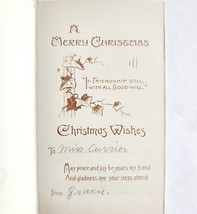 A
MERRY CHRISTMAS
"IN FRIENDSHIP STILL,
WITH ALL GOOD-WILL."
Christmas Wishes
To Miss Currier
May peace and joy be yours my friend
And gladness aye your steps attend
From Gracie.